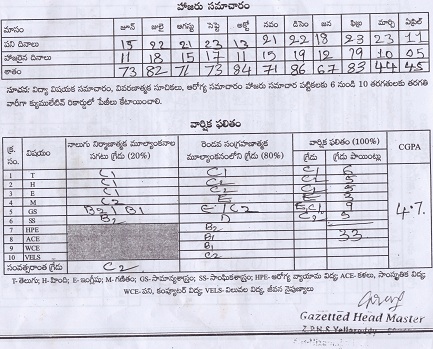 హాజరు సమాచారం
మాసం జూన్ జులై ఆగస్టు సెప్టె అక్టో నవం డిసెం జన ఫిబ్ర మార్చి ఏప్రిల్
పని దినాలు 15 22 21 23 13 21 22 18 23 23 11
హాజరైన దినాలు 11 18 15 17 11 15 19 12 19 10 05
శాతం 73 82 71 73 84 71 86 67 83 44 45
సూచన: విద్యా విషయక సమాచారం, వివరణాత్మక సూచికలు, ఆరోగ్య సమాచారం హాజరు సమాచార పట్టికలకు 6 నుండి 10 తరగతులకు తరగతి
వారీగా క్యుములేటివ్ రికార్డులో పేజీలు కేటాయించాలి.
వార్షిక ఫలితం
క్ర. సం. విషయం నాలుగు నిర్మాణాత్మక మూల్యాంకనాల సగటు గ్రేడు (20%) రెండవ సంగ్రహణాత్మక మూల్యాంకనంలోని గ్రేడ్ (80%) వార్షిక ఫలితం (100%) గ్రేడు గ్రేడు పాయింట్లు CGPA
1 T C1 C1 C1 6
2 H C1 C2 C2 5
3 E C1 C2 C2 5
4 M C2 E E 3
5 GS B2 B1 E C2 E, C1 9
6 SS B2 D C2 5
4.7
7 HPE B2
8 ACE B1 33
9 WCE B1
10 VELS B2
సంవత్సరాంత గ్రేడు C2
T- తెలుగు; H-హిందీ; E-ఇంగ్లీషు; M-గణితం; GS-సామాన్యశాస్త్రం; SS-సాంఘికశాస్త్రం; HPE-ఆరోగ్య వ్యాయామ విద్య; ACE-కళలు, సాంస్కృతిక విద్య;
WCE-పని, కంప్యూటర్ విద్య; VELS-విలువల విద్య, జీవన నైపుణ్యాలు
Gazetted Head Master
Z.P.H.S Yellareddy